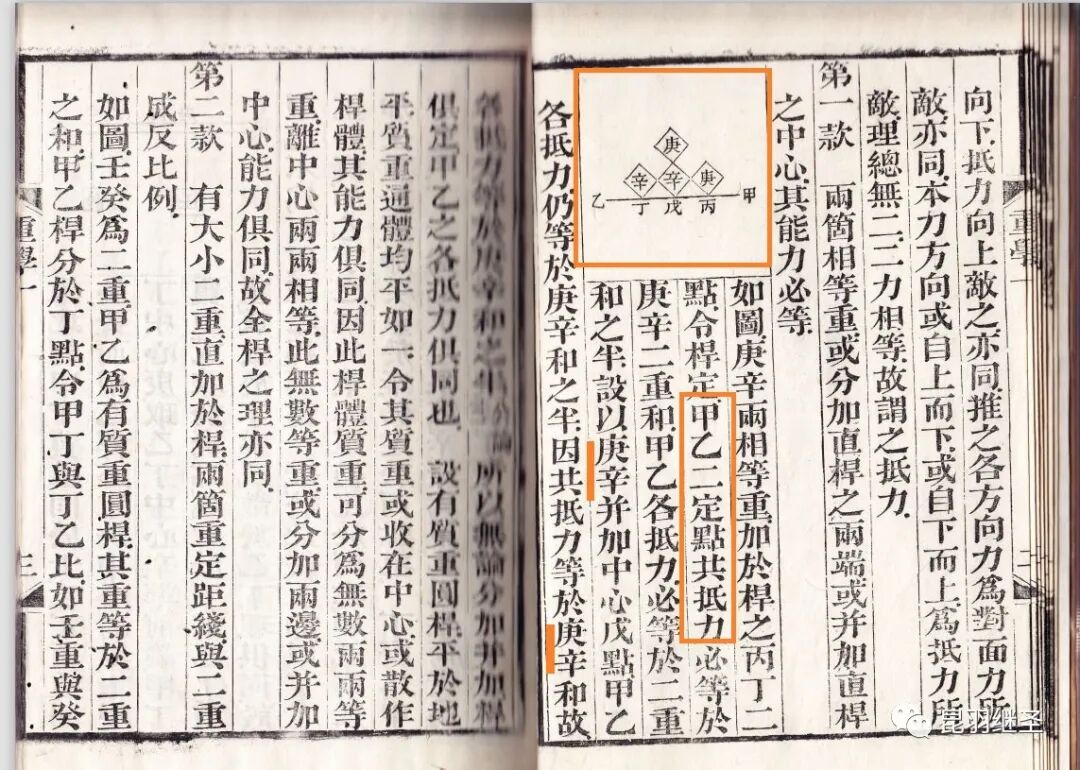 向下抵力向上敵之亦同推之各方向力爲對面力所
敵亦同本力方向或自上而下或自下而上爲抵力所
敵理總無二二力相等故謂之抵力
第一款 兩箇相等重或分加直桿之兩端或并加直桿
之中心其能力必等
庚
辛 辛 庚
乙 丁 戊 丙 甲
如圖庚辛兩相等重加於桿之丙丁二
點令桿定甲乙二定點共抵力必等於
庚辛二重和甲乙各抵力必等於二重
和之半設以庚辛并加中心戊點甲乙
各抵力仍等於庚辛和之半因共抵力等於庚辛和故
重學一
二
各抵力等於庚辛和之半 所以無論分加并加桿
俱定甲乙之各抵力俱同也 設有質重圓桿平於地
平質重通體均平如一令其質重或收在中心或散作
桿體其能力俱同因此桿體質重可分爲無數兩兩等
重離中心兩兩相等此無數等重或分加兩邊或并加
中心能力俱同故全桿之理亦同
第二款 有大小二重直加於桿兩箇重定距綫與二重
成反比例
如圖壬癸爲二重甲乙爲有質重圓桿其重等於二重
之和甲乙桿分於丁點令甲丁與丁乙比如壬重與癸
重學一
三
昆羽继圣